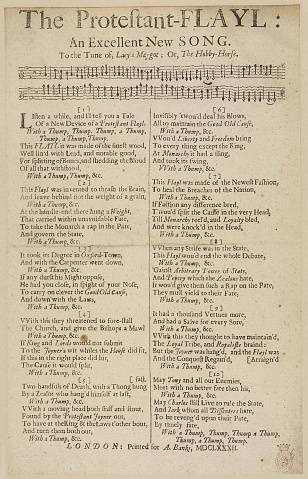 The Protestant-FLAYL:
An Excellent New SONG.
To the Tune of, Lacy's Maggot; Or, The Hobby-Horse.
[1]
Listen a while, and I'll tell you a Tale
Of a New Device of a Protestant Flayl:
With a Thump, Thump, Thump, a Thump,
Thump, a Thump, Thump.
This FLAYL it was made of the finest wood,
Well lin'd with Lead, and notable good,
For splitting of Bones, and shedding the Bloud
Of all that withstood,
With a Thump, Thump, &c.
[2]
This Flayl was invented to thrash the Brain,
And leave behind not the weight of a grain,
With a Thump, &c.
At the handle-end there hung a Weight,
That carried within unavoidable Fate,
To take the Monarch a rap in the Pate,
And govern the State,
With a Thump, &c.
[3]
It took its Degree in Oxford-Town,
And with the Carpenter went down,
With a Thump, &c.
If any durst his Might oppose,
He had you close, in spight of your Nose,
To carry on clever the Good Old Cause,
And down with the Laws,
With a Thump, &c.
[4]
With this they threatned to fore-stall
The Church, and give the Bishops a Mawl
With a Thump, &c.
If King and Lords would not submit
To the Joyner's wit whiles the House did sit,
If this in the right place did hit,
The Cause it would split,
With a Thump, &c.
[5]
Two handfuls of Death, with a Thong hung fast
By a Zealot who hang'd himself at last,
With a Thump, &c.
With a moving head both stiff and stout,
Found by the Protestant Joyner out,
To have at the King & the Laws t'other bout,
And turn them both out,
With a Thump, &c.
[6]
Invisibly 'twou'd deal his Blows,
All to maintain the Good Old Cause,
With a Thump, &c.
'Twou'd Liberty and Freedom bring
To every thing except the King,
At Monarchy it had a fling,
And took its swing,
With a Thump, &c.
[7]
This Flayl was made of the Newest Fashion,
To heal the Breaches of the Nation,
With a Thump, &c.
If Faction any difference bred,
'Twou'd split the Cause in the very Head,
Till Monarchy reel'd, and Loyalty bled,
And were knock'd in the Head,
With a Thump, &c.
[8]
When any Strife was in the State,
This Flayl wou'd end the whole Debate,
With a Thump, &c.
'Gainst Arbitrary Power of State,
And Popery which the Zealous hate,
It wou'd give them such a Rap on the Pate,
They must yield to their Fate,
With a Thump, &c.
[9]
It had a thousand Vertues more,
And had a Salve for every Sore,
With a Thump, &c.
With this they thought to have maintain'd,
The Loyal Tribe, and Royalists brain'd:
But the Joyner was hang'd, and the Flayl was [Araign'd
And the Conquest Regain'd,
With a Thump, &c.
[10]
May Tony and all our Enemies,
Meet with no better fare then his,
With a Thump, &c.
May Charles still Live to rule the State,
And York whom all Dissenters hate,
To be reveng'd upon their Pate,
By timely fate,
With a Thump, Thump, Thump, Thump,
a Thump, Thump, Thump.
LONDON: Printed for A. Banks, MDCLXXXII.